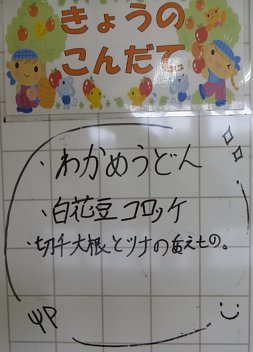 きょうの
こんだて
・わかめうどん
・白花豆コロッケ
・切干大根とツナの和えもの。